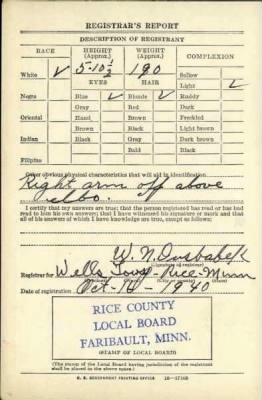 REGISTRAR'S REPORT
DESCRIPTION OF REGISTRANT
RACE HEIGHT (Approx.) WEIGHT (Approx.) COMPLEXION
White ✓ 5-10½ 190 Sallow
EYES HAIR Light ✓
Negro Blue ✓ Blonde ✓ Ruddy
Gray Red Dark
Oriental Hazel Brown Freckled
Brown Black Light brown
Indian Black Gray Dark brown
Bald Black
Filipino
Other obvious physical characteristics that will aid in identification
Right arm off above
elbo.
I certify that my answers are true; that the person registered has read or has had
read to him his own answers; that I have witnessed his signature or mark and that
all of his answers of which I have knowledge are true, except as follows:
W. N. Dusbabek
(Signature of registrar)
Registrar for Wells Town Rice Minn
Date of registration Oct-16-1940
RICE COUNTY
LOCAL BOARD
FARIBAULT, MINN.
(STAMP OF LOCAL BOARD)
(The stamp of the Local Board having jurisdiction of the registrant
shall be placed in the above space.)
U. S. GOVERNMENT PRINTING OFFICE 16-17105